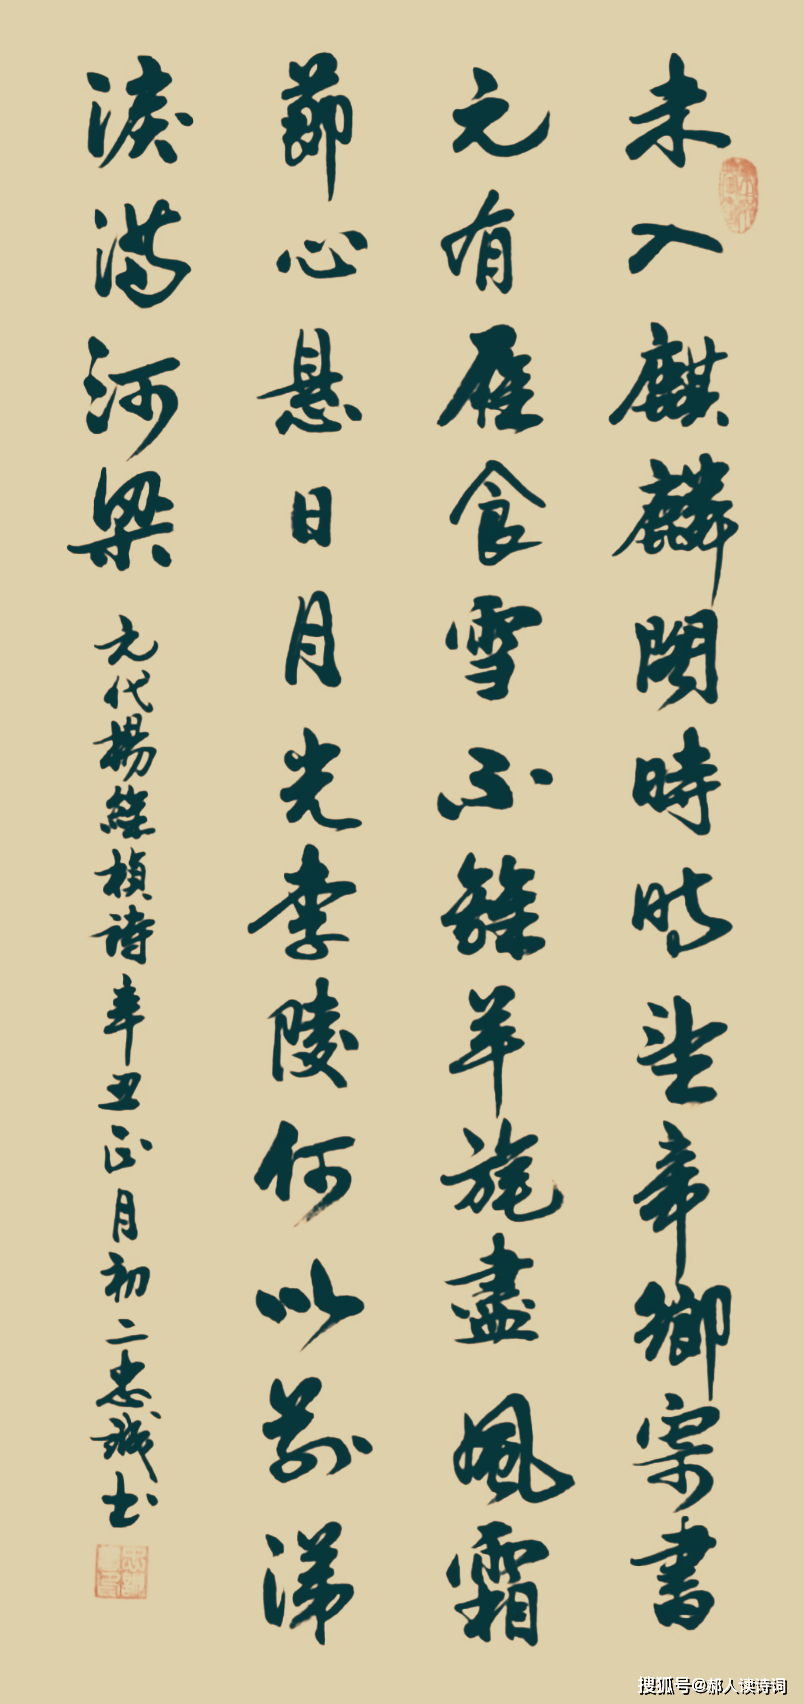 未入麒麟閣時时望帝鄉寄書
元有雁食雪不離羊旄盡風霜
節心悬日月光李陵何以别涕
淚满河梁
元代楊維楨詩辛丑正月初二忠誠书
搜狐号@郝人读诗词